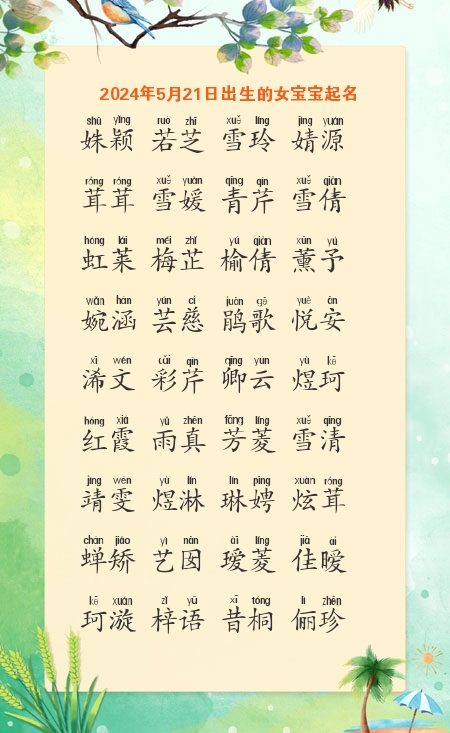 2024年5月21日出生的女宝宝起名
shū yǐng ruò zhī xuě líng jìng yuán
姝颖 若芝 雪玲 婧源
róng róng xuě yuàn qīng qín xuě qiàn
茸茸 雪媛 青芹 雪倩
hóng lái méi zhǐ yú qiàn xūn yú
虹莱 梅芷 榆倩 薰予
wǎn hán yún cí juān gē yuè ān
婉涵 芸慈 鹃歌 悦安
xī wén cǎi qín qīng yún yù kē
浠文 彩芹 卿云 煜珂
hóng xiá yǔ zhēn fāng líng xuě qīng
红霞 雨真 芳菱 雪清
jìng wén yù lín lín pīng xuàn róng
靖雯 煜淋 琳娉 炫茸
chán jiāo yì nān ài líng jiā ài
蝉矫 艺囡 瑷菱 佳暧
kē xuán zǐ yǔ xī tóng lì zhēn
珂漩 梓语 昔桐 俪珍